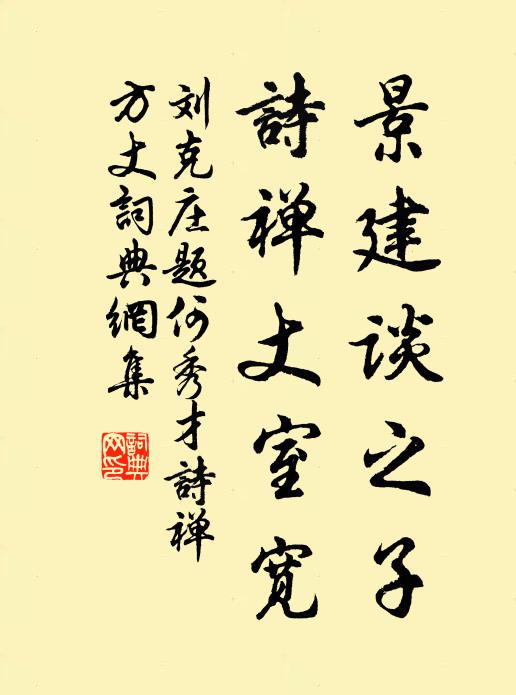 景建谈之子
詩禅丈室寬
刘克庄题何秀才詩禅
方丈詞典網集
詞典
网印